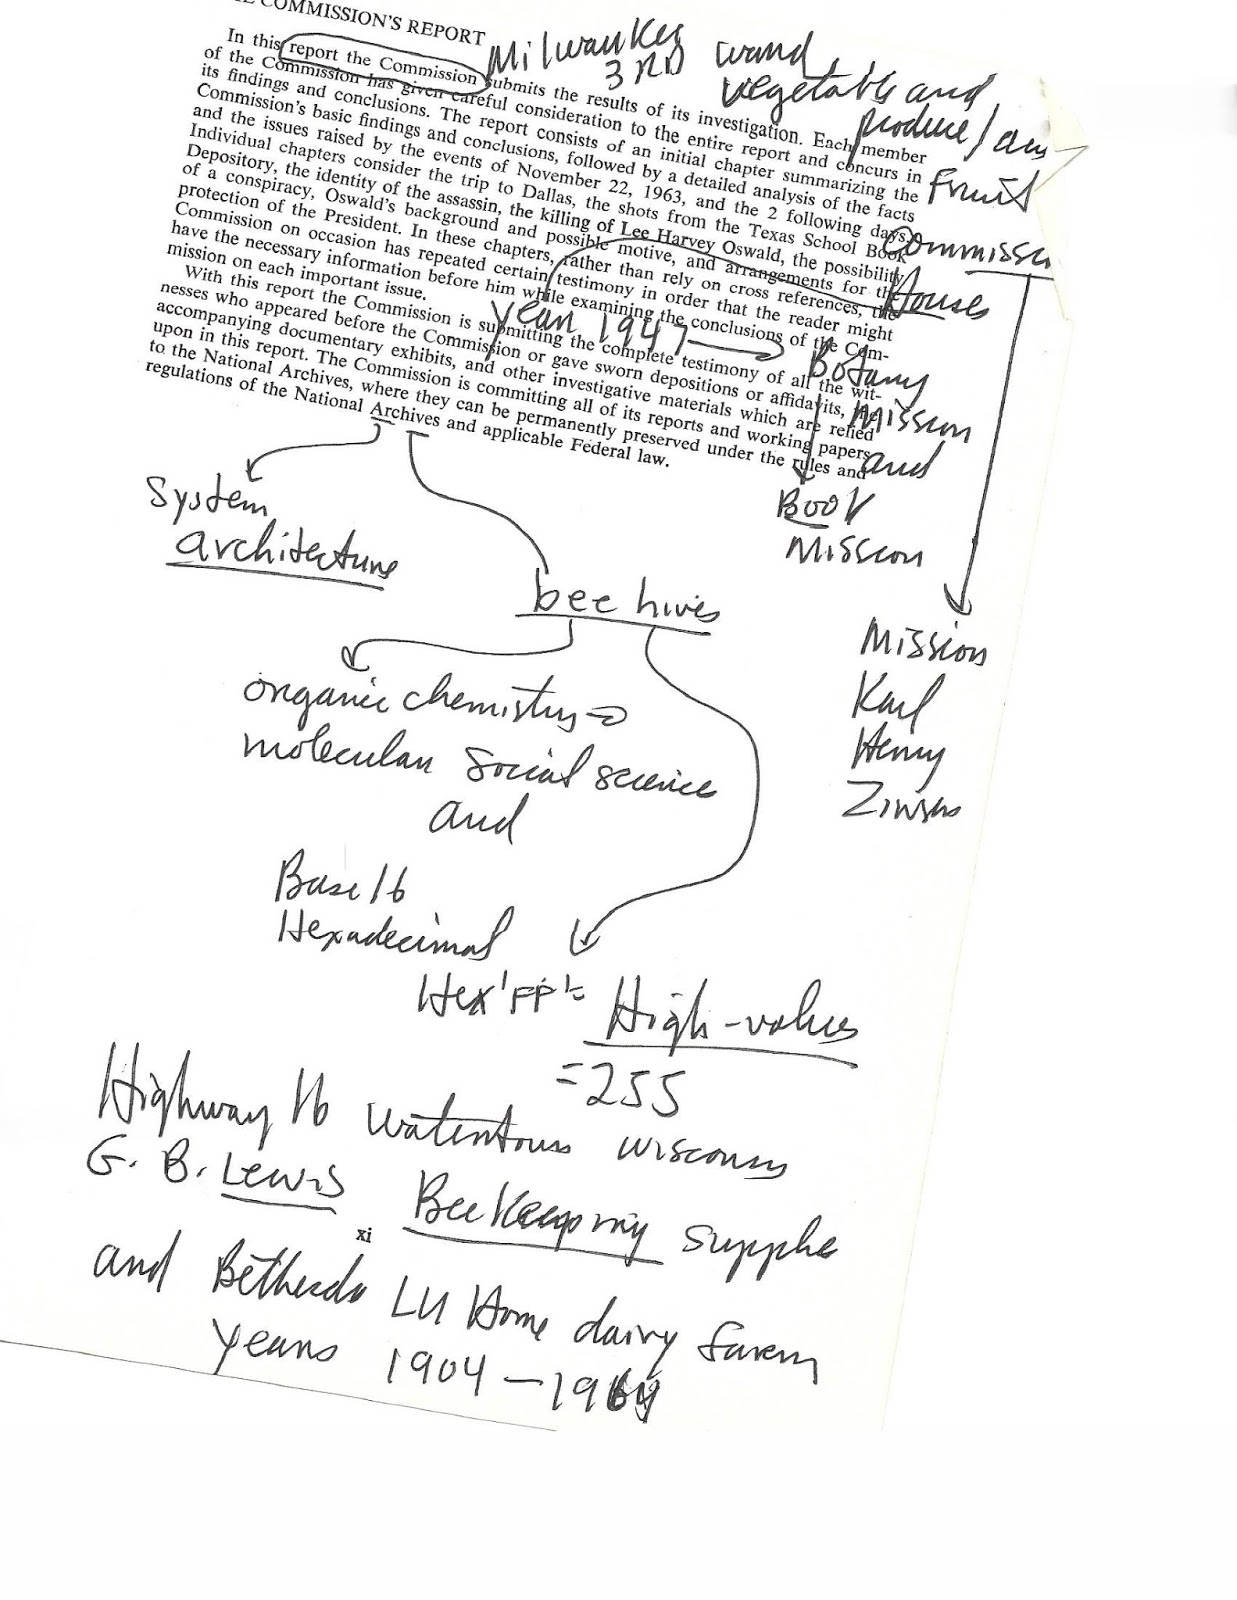 COMMISSION'S REPORT
In this report the Commission submits the results of its investigation. Each member
of the Commission has given careful consideration to the entire report and concurs in
its findings and conclusions. The report consists of an initial chapter summarizing the
Commission's basic findings and conclusions, followed by a detailed analysis of the facts
and the issues raised by the events of November 22, 1963, and the 2 following days.
Individual chapters consider the trip to Dallas, the shots from the Texas School Book
Depository, the identity of the assassin, the killing of Lee Harvey Oswald, the possibility
of a conspiracy, Oswald's background and possible motive, and arrangements for the
protection of the President. In these chapters, rather than rely on cross references, the
Commission on occasion has repeated certain testimony in order that the reader might
have the necessary information before him while examining the conclusions of the Com-
mission on each important issue.
With this report the Commission is submitting the complete testimony of all the wit-
nesses who appeared before the Commission or gave sworn depositions or affidavits, the
accompanying documentary exhibits, and other investigative materials which are relied
upon in this report. The Commission is committing all of its reports and working papers
to the National Archives, where they can be permanently preserved under the rules and
regulations of the National Archives and applicable Federal law.
Milwaukee wand
3RD vegetable and
produce / and
Fruit
Commission
House
year 1947
Botany
Mission
and
Book
Mission
Mission
Karl
Henry
System
architecture
bee hives
organic chemistry
molecular social science
and
Base 16
Hexadecimal
Hex 'FF' = High-values
= 255
Highway 16 Watertown Wisconsin
G. B. Lewis Beekeeping supplies
xi
and Bethesda LU Home dairy farm
years 1904 - 1964